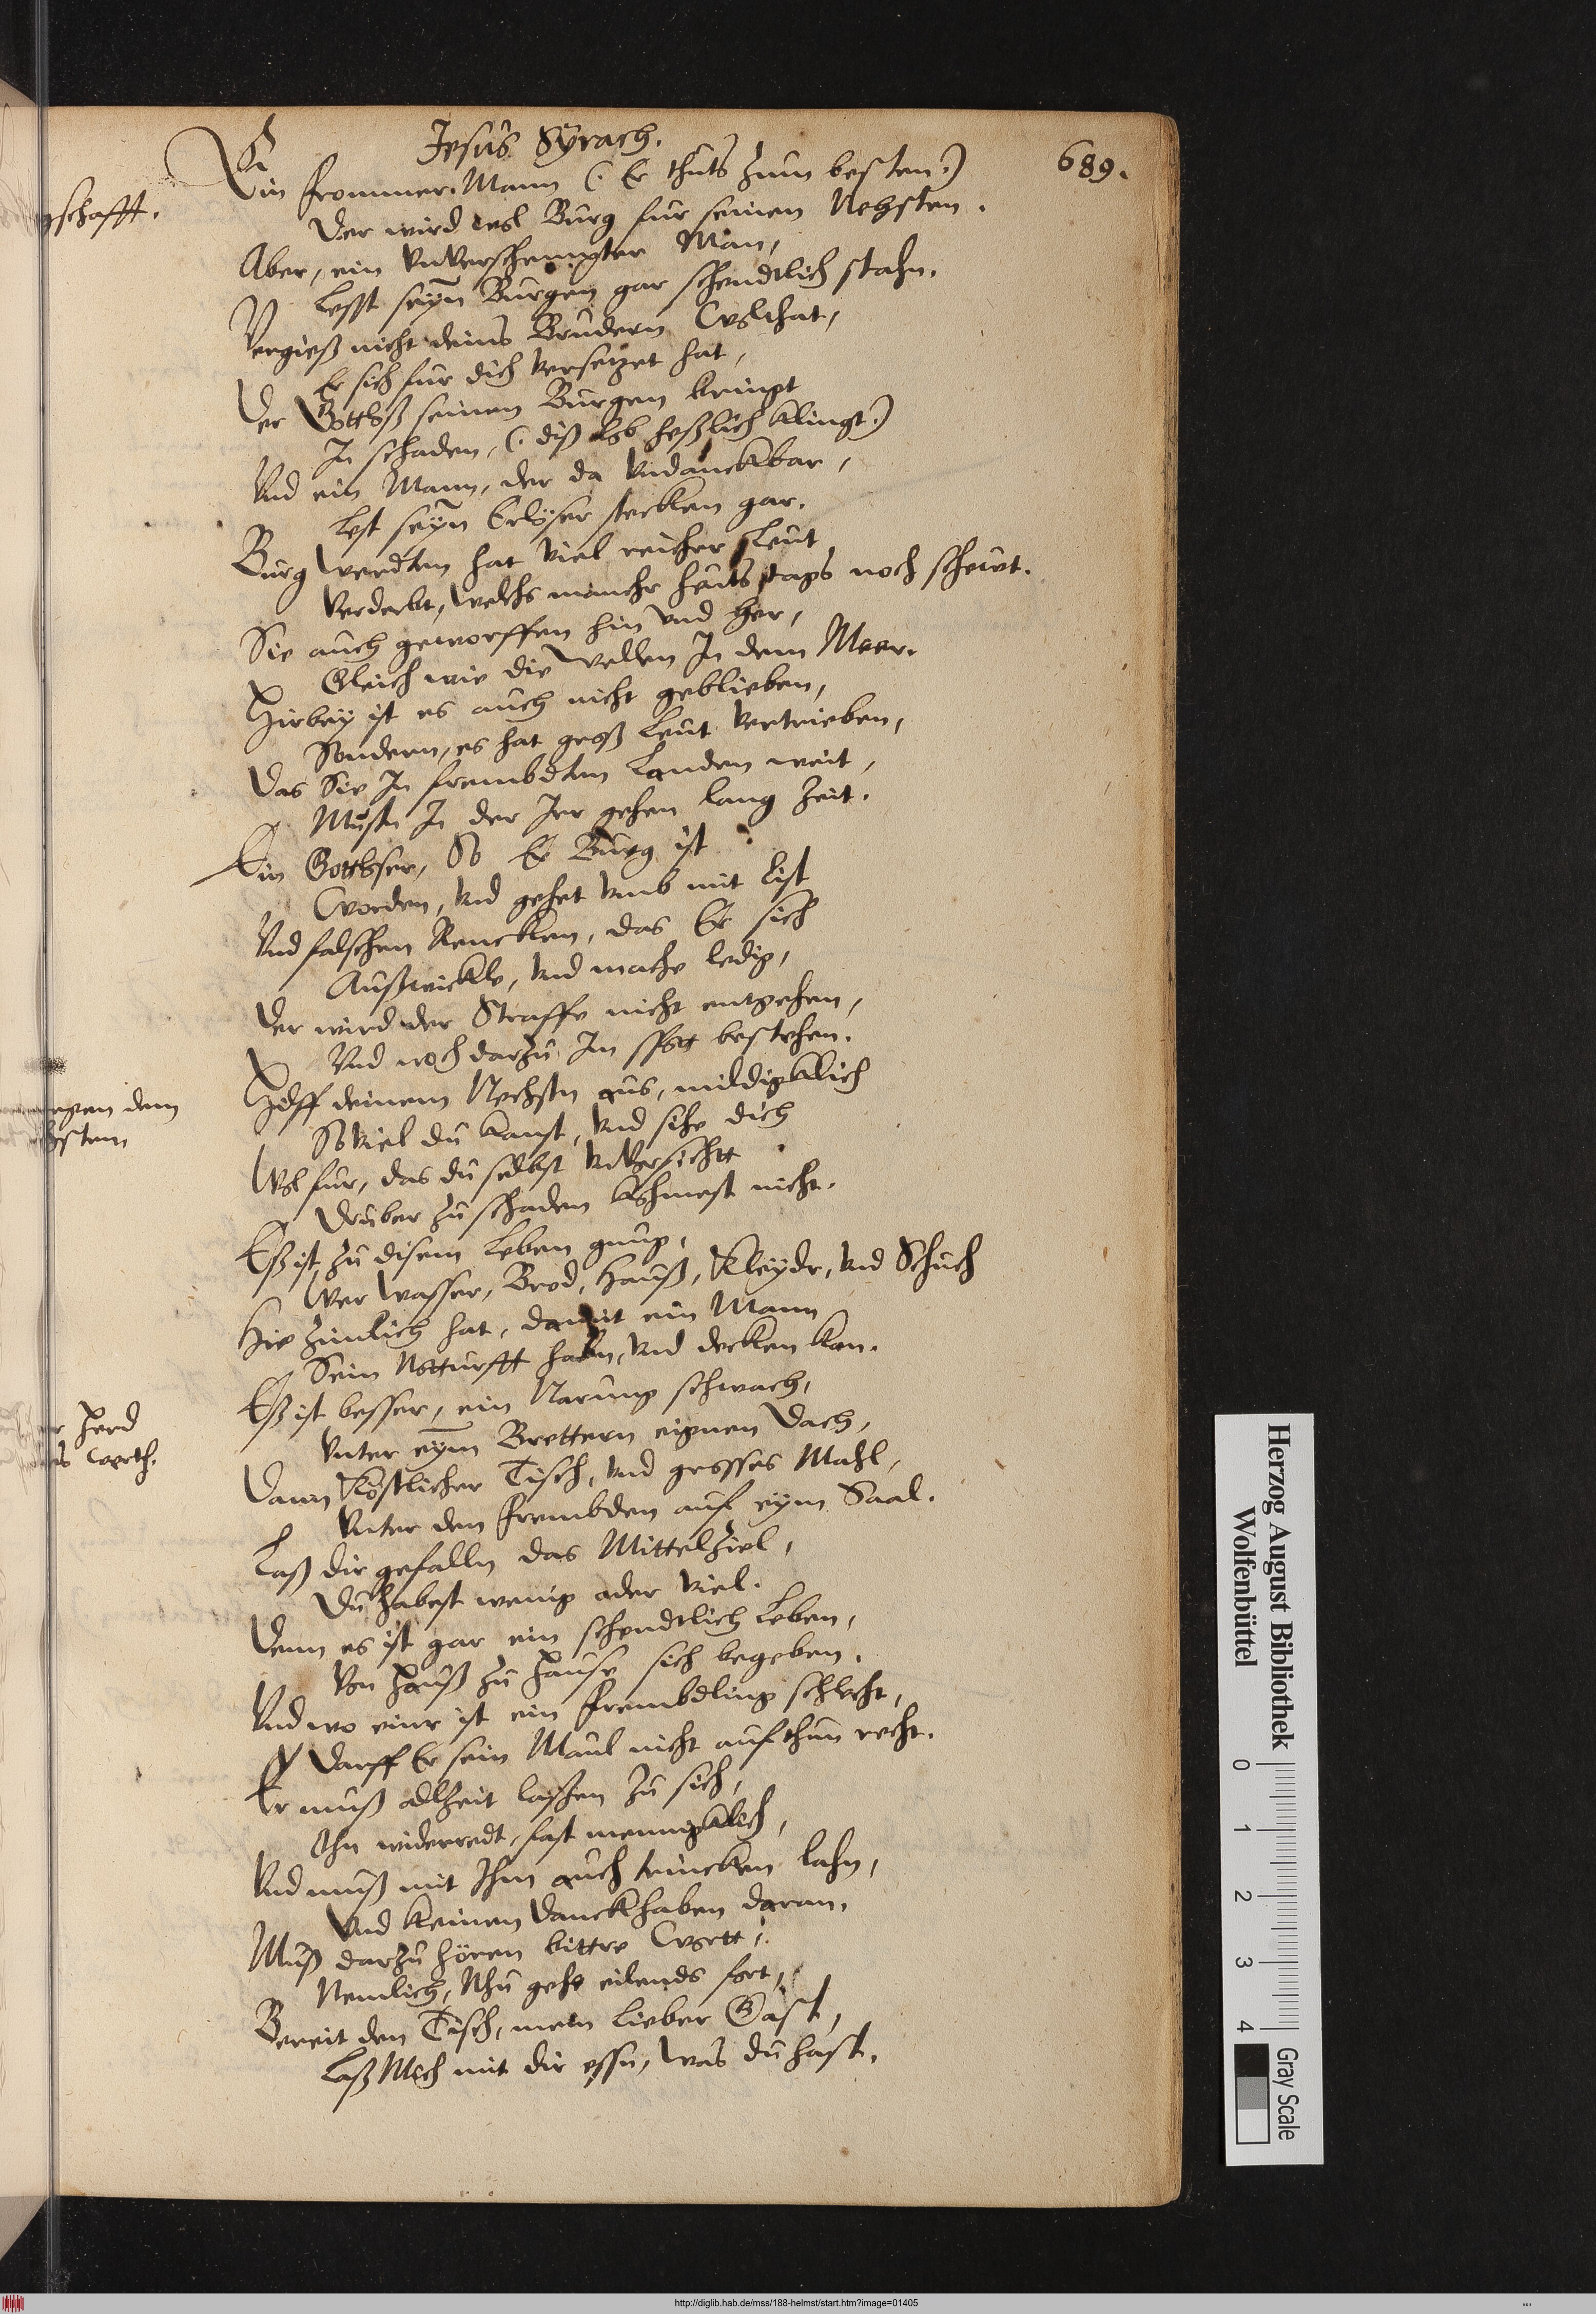 Jesus Syrach.
689.
Ein frommer Mann (: Er thuts zum besten :)
Der wird wol Burg fur seinen Nehsten.
Aber, ein unverschempter Man,
Lesst seyn Burgen gar schendtlich stahn.
Vergieß nicht deins Brudern Wolthat,
Er sich fur dich versetzet hat,
Der Gottloß seinen Burgen bringt
In schaden, (: diß Lob heßlich klingt :)
Und ein Mann, der da undanckbar,
Lest seyn Erlöser stecken gar.
Burg werdten hat viel reicher Leut
Verderbt, welchs mancher heuts tags noch scheut.
Sie auch geworffen hin und her,
Gleich wie die wellen In dem Meer.
Hirbey ist es auch nicht geblieben,
Sondern, es hat groß Leut vertrieben,
Das Sie In frembdten Landen weit,
Mustn In der Irr gehen lang Zeit.
Ein Gottloser, So Er Burg ist
Worden, und gehet umb mit list
Und falschen Rencken, das Er sich
Außwickle, und mache ledig,
Der wird der Straffe nicht entgehen,
Und noch darzu Im spott bestehen.
Hilff deinem Nechstn aus, mildigklich
So viel du kanst, und sihe dich
Wol fur, das du selbst unversicht
Druber zu schaden kohmest nicht.
Eß ist, zu disem Leben gnug,
Wer Wasser, Brod, Hauß, Kleyder, und Schuch
Hie zimlich hat, damit ein Mann
Sein Notturfft haben, und decken kan.
Eß ist besser, ein Narung schwach,
Unter eym Brettern eignen Dach,
Dann köstlicher Tisch, und grosses Mahl,
Unter den frembden auf eym Saal.
Laß dir gefalln das Mittelziel,
Du habest wenig oder viel.
Denn es ist gar ein schendtlich Leben,
Von Hauß zu Hause sich begeben.
Und wo einer ist ein frembdling schlecht,
Darff Er sein Maul nicht aufthun recht.
Er muß allzeit lassen zu sich,
Ihn widerredt, fast mennigklich,
Und muß mit Ihm auch trincken lahn,
Und keinen Danck haben daran.
Muß darzu hören bittre Wortt:
Nemlich, Nhu gehe eilends fort,
Bereit den Tisch, mein lieber Gast,
Laß Mich mit dir essn, was du hast.
gschafft.
egen dem
hsten
Herd
Werth.
Herzog August Bibliothek
Wolfenbüttel
0 1 2 3 4
Gray Scale
http://diglib.hab.de/mss/188-helmst/start.htm?image=01405